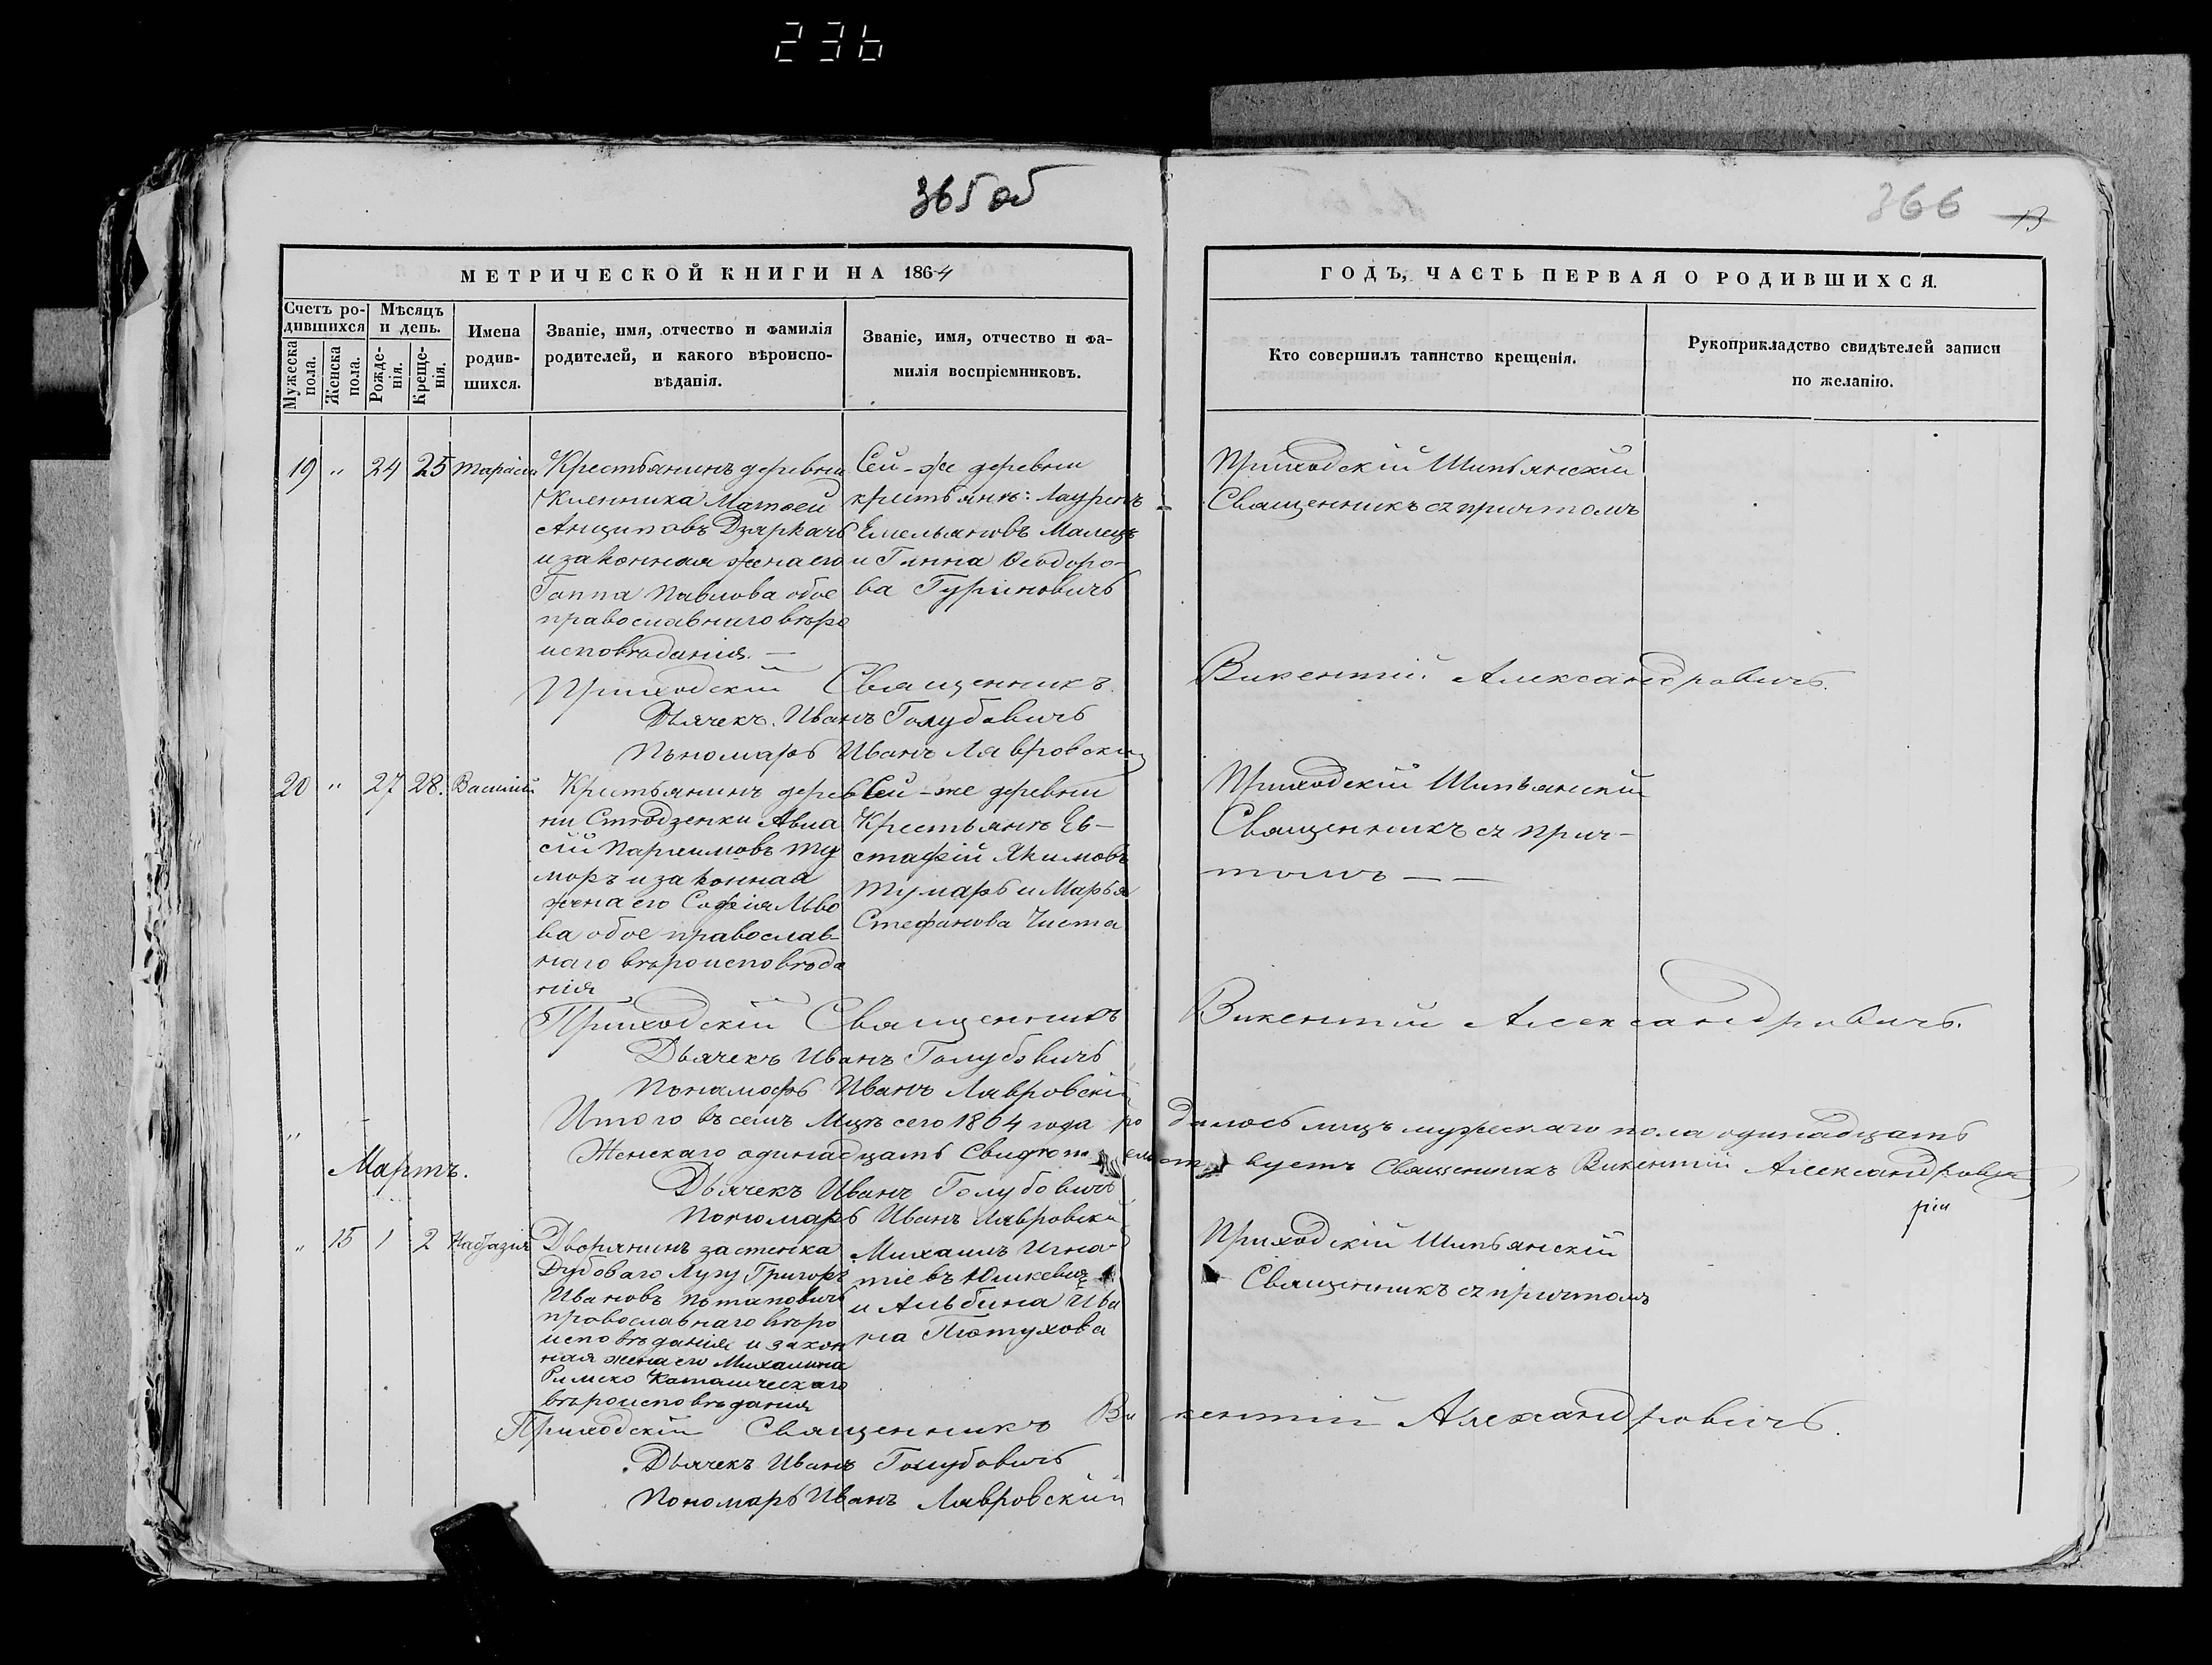 236
365 об
366 13
МЕТРИЧЕСКОЙ КНИГИ НА 1864
ГОДЪ, ЧАСТЬ ПЕРВАЯ О РОДИВШИХСЯ.
Счетъ ро-
дившихся
Мужеска
пола.
Женска
пола.
Мѣсяцъ
и день.
Рожде-
нія.
Креще-
нія.
Имена
родив-
шихся.
Званіе, имя, отчество и фамилія
родителей, и какого вѣроиспо-
вѣданія.
Званіе, имя, отчество и фа-
милія воспріемниковъ.
Кто совершилъ таинство крещенія.
Рукоприкладство свидѣтелей записи
по желанію.
19 " 24 25
Крестьянинъ деревни
Кленника Матѳей
Анциповъ Дзяркачъ
и законная жена его
Гаппа Павлова обое
православнаго вѣро
исповѣданія. —
Сей-же деревни
крестьяне: Лауренъ
Емельяновъ Малецъ
и Ганна Ѳеодоро-
ва Гуриновичъ
Приходскій Шипьянскій
Священникъ съ причтомъ
Приходскій Священникъ Викентій Александровичъ.
Дьячекъ Иванъ Голубовичъ
Пономарь Иванъ Лавровскій
20 " 27 28. Василій
Крестьянинъ дерев
ни Стюдзенки Авла
сій Пархимовъ Ту
моръ и законная
жена его Софія Льво
ва обое православ-
наго вѣроисповѣда
нія
Сей-же деревни
Крестьяне Ев-
стафій Якимовъ
Тумаръ и Марья
Стефанова Чиста
Приходскій Шипьянскій
Священникъ съ прич-
томъ — —
Приходскій Священникъ Викентій Александровичъ.
Дьячекъ Иванъ Голубовичъ
Пономарь Иванъ Лавровскій
Итого въ семъ Мцѣ сего 1864 года родилось лицъ мужескаго пола одинадцать
Женскаго одинадцать Священникъ Викентій Александрович
Дьячекъ Иванъ Голубовичъ
Пономарь Иванъ Лавровскій
Мартъ.
" 15 1 2
Дворянинъ застенка
Дубоваго Лугу Григор
Ивановъ Потаповичъ
православнаго вѣро
исповѣданія и закон
ная жена его Михалина
Римско Католическаго
вѣроисповѣданія
Михаилъ Игна-
тіевъ Юшкевич
и Альбина Ива
на Пѣтухова
Приходскій Шипьянскій
Священникъ съ причтомъ
Приходскій Священникъ Викентій Александровичъ.
Дьячекъ Иванъ Голубовичъ
Пономарь Иванъ Лавровскій